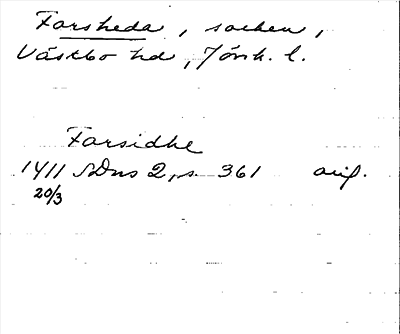 Forsheda, socken,
Västbo hd, Jönk. l.
Forsidhe
1411 SDns 2, s. 361 orig.
20/3